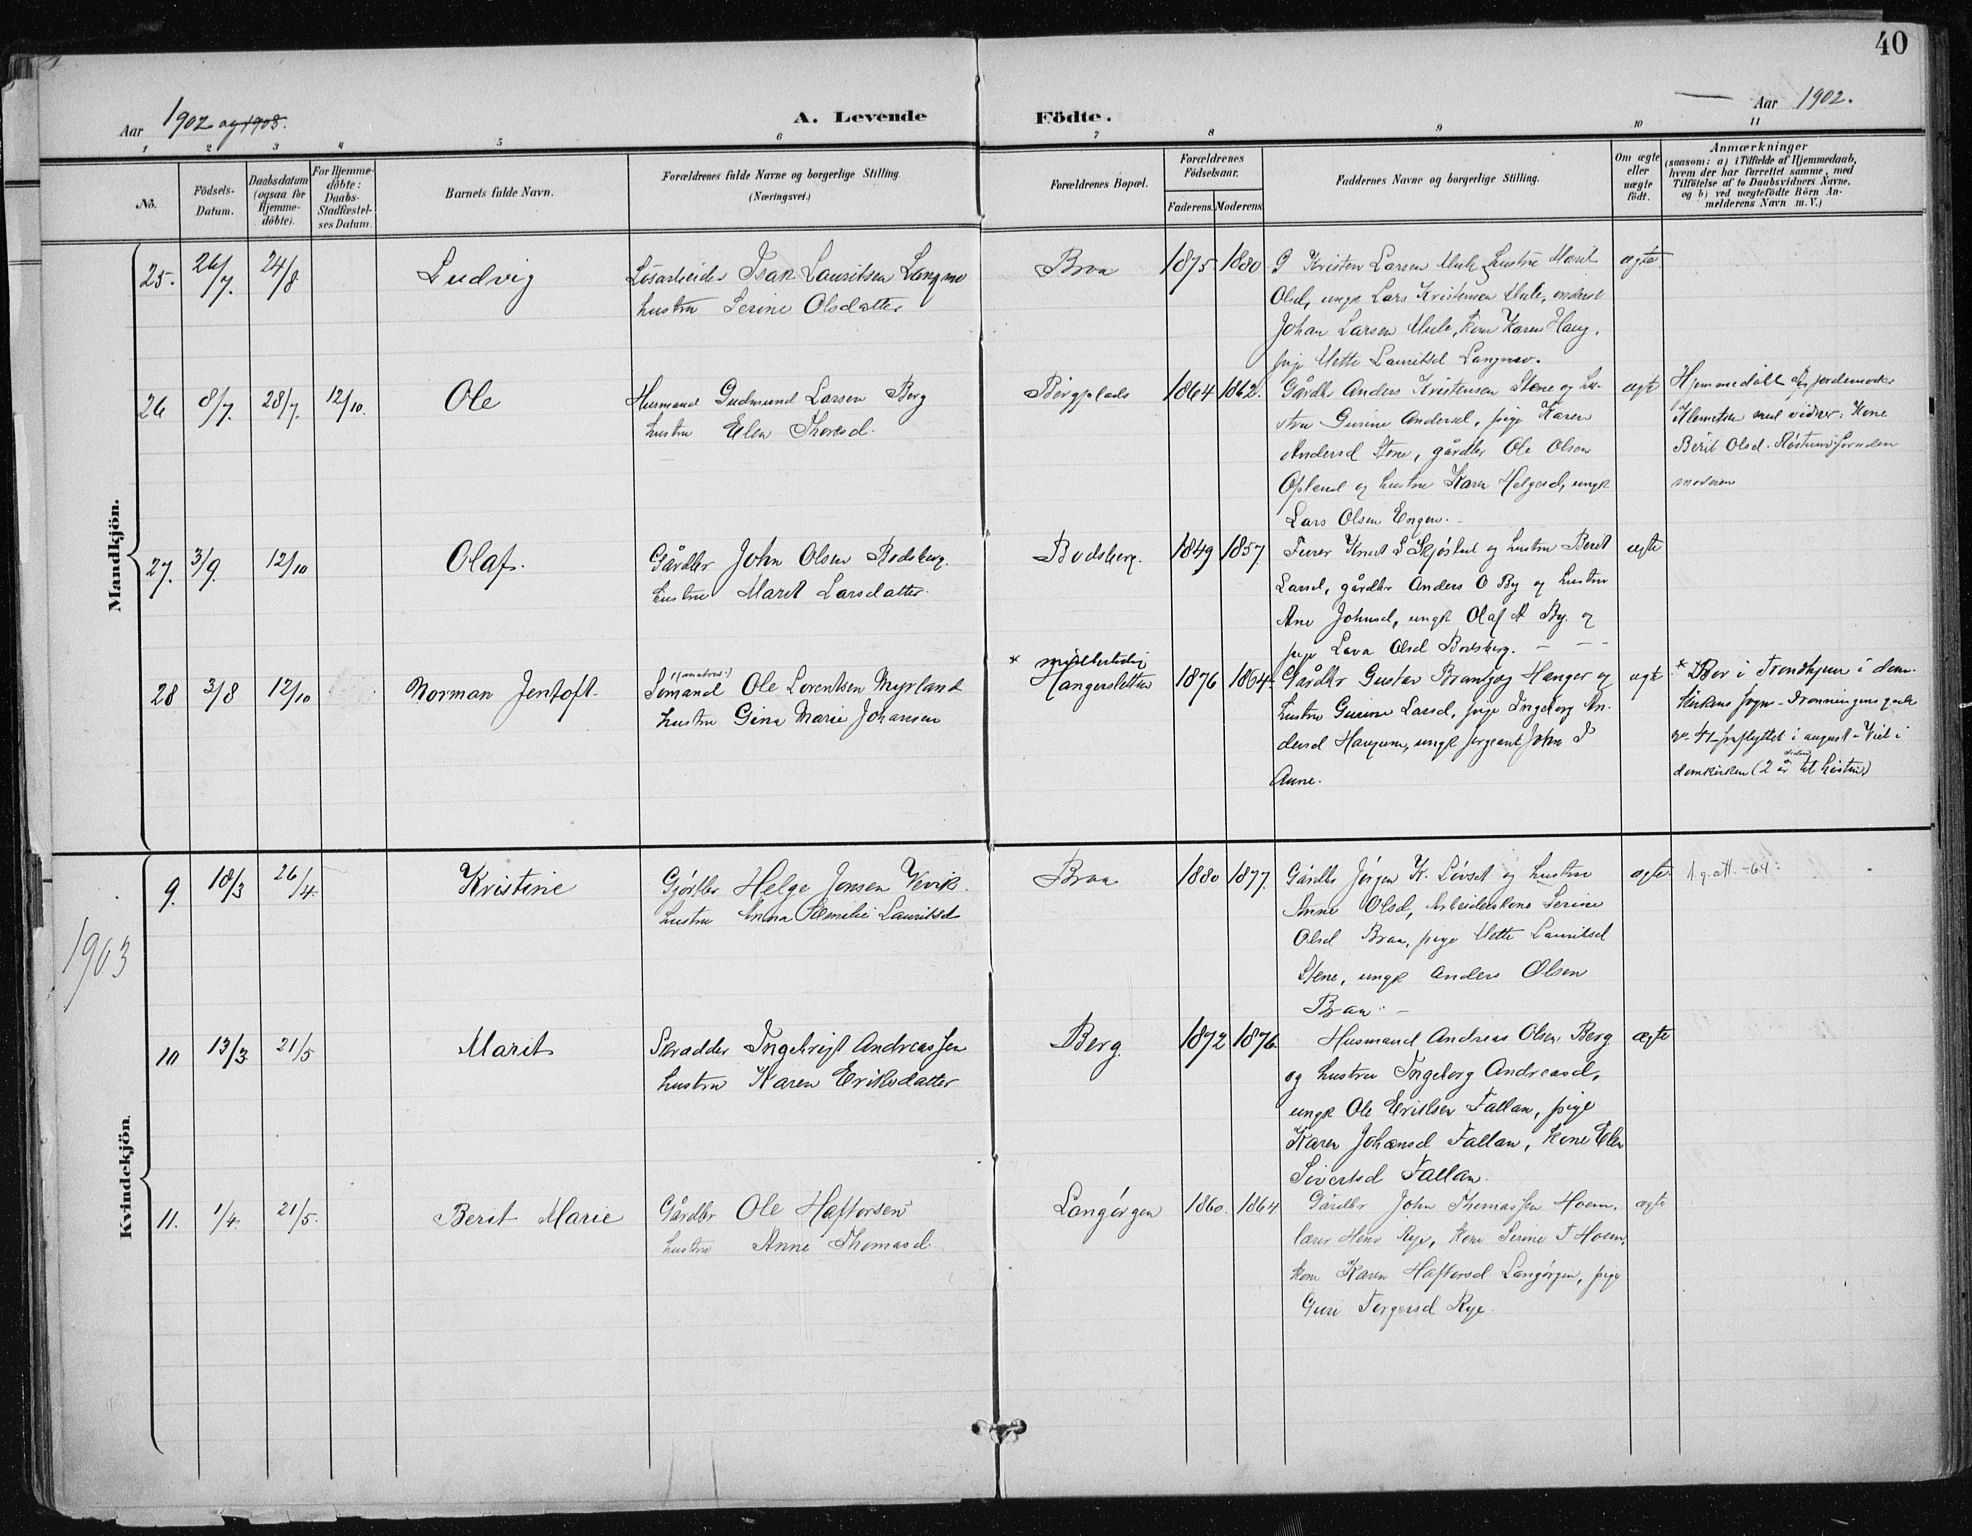 40
Aar 1902 og 1903.
A. Levende Födte.
Aar 1902.
1 2 3 4 5 6 7 8 9 10 11
No.
Födsels-Datum.
Daabsdatum (ogsaa for Hjemme-döbte).
For Hjemme-döbte: Daabs-Stadfæstel-ses Datum.
Barnets fulde Navn.
Forældrenes fulde Navne og borgerlige Stilling
(Næringsvei.)
Forældrenes Bopæl.
Forældrenes Födselsaar.
Faderens. Moderens.
Faddernes Navne og borgerlige Stilling.
Om ægte eller uægte födt.
Anmærkninger
(saasom: a) i Tilfælde af Hjemmedaab,
hvem der har forrettet samme, med
Tilföielse af to Daabsvidners Navne,
og b) ved uægtefödte Börn An-
melderens Navn m. V.)
Mandkjön.
25. 26/7. 24/8 Ludvig
Løsarbeider Isak Lauritsen Langmo
hustru Serine Olsdatter
Braa 1875 1880
G Kristen Larsen Mule, hustru Marit
Olsd, ungk Lars Kristensen Mule,
Johan Larsen Mule, kone Karen Haug,
pige Mette Lauritsd Langmo.
ægte
26 8/7. 28/7. 12/10.
Ole
Husmand Gudmund Larsen Berg
hustru Elen Thoresd.
Bergplads 1864 1862.
Gårdbr Anders Kristensen Stene og hu-
stru Gurine Andersd, pige Karen
Andersd Stene, gårdbr Ole Olsen
Opland og hustru Karen Helgesd, ungk
Lars Olsen Engen.
ægte
Hjemmedöbt af jordemoder
Klemetsen med vidner: Kone
Berit Olsd. foruden
moderen
27. 3/9. 12/10 Olaf.
Gårdbr John Olsen Bodsberg.
hustru Marit Larsdatter.
Bodsberg. 1849 1857.
Furer Knut S Skjøstad og hustru Berit
Larsd, gårdbr Anders O By og hustru
Ane Johnsd, ungk Olaf A By. og
pige Lava Olsd Bodsberg.
ægte
28 3/8 12/10 Norman Jentoft.
Sömand Ole Lorentsen Myrland
hustru Gina Marie Johansen
* midlertidig
Hangersletten 1876 1864.
Gårdbr Gustav Hanger og
hustru Gurine Larsd, pige Ingeborg An-
dersd Haugum, ungk sergeant John J
Aune.
ægte
* Bor i Trondhjem i dom-
kirkens sogn - Dronningens gade
fraflyttet i august - Viet i
domkirken (2 år
Kvindekjön
1903
9. 18/3 26/4. Kristine
Helge Jonsen Vevik.
hustru Anna Emilie Lauritsd
Braa 1880 1877.
Gårdbr Jørgen K. Løvset og hustru
Anne Olsd, Arbeiderkone Serine
Olsd Braa, pige Mette Lauritsd
Stene, ungk Anders Olsen
Braa.
ægte.
att. -64.
10 13/3 21/5 Marit
Skradder Ingebrigt Andreassen
hustru Karen Eriksdatter
Berg 1872 1876.
Husmand Andreas Olsen Berg
og hustru Ingeborg Andreasd,
ungk Ole Eriksen Fallan, pige
Karen Johansd Fallan, kone Elen
Sivertsd Fallan.
ægte
11. 1/4. 21/5. Berit Marie
Gårdbr Ole Haftorsen
hustru Anne Thomasd.
Langørgen 1860. 1864
Gårdbr John Thomassen Hoem,
lærer Rye, kone Serine T Hoem,
kone Karen Haftorsd Langørgen, pige
Guri Torgersd Rye.
ægte